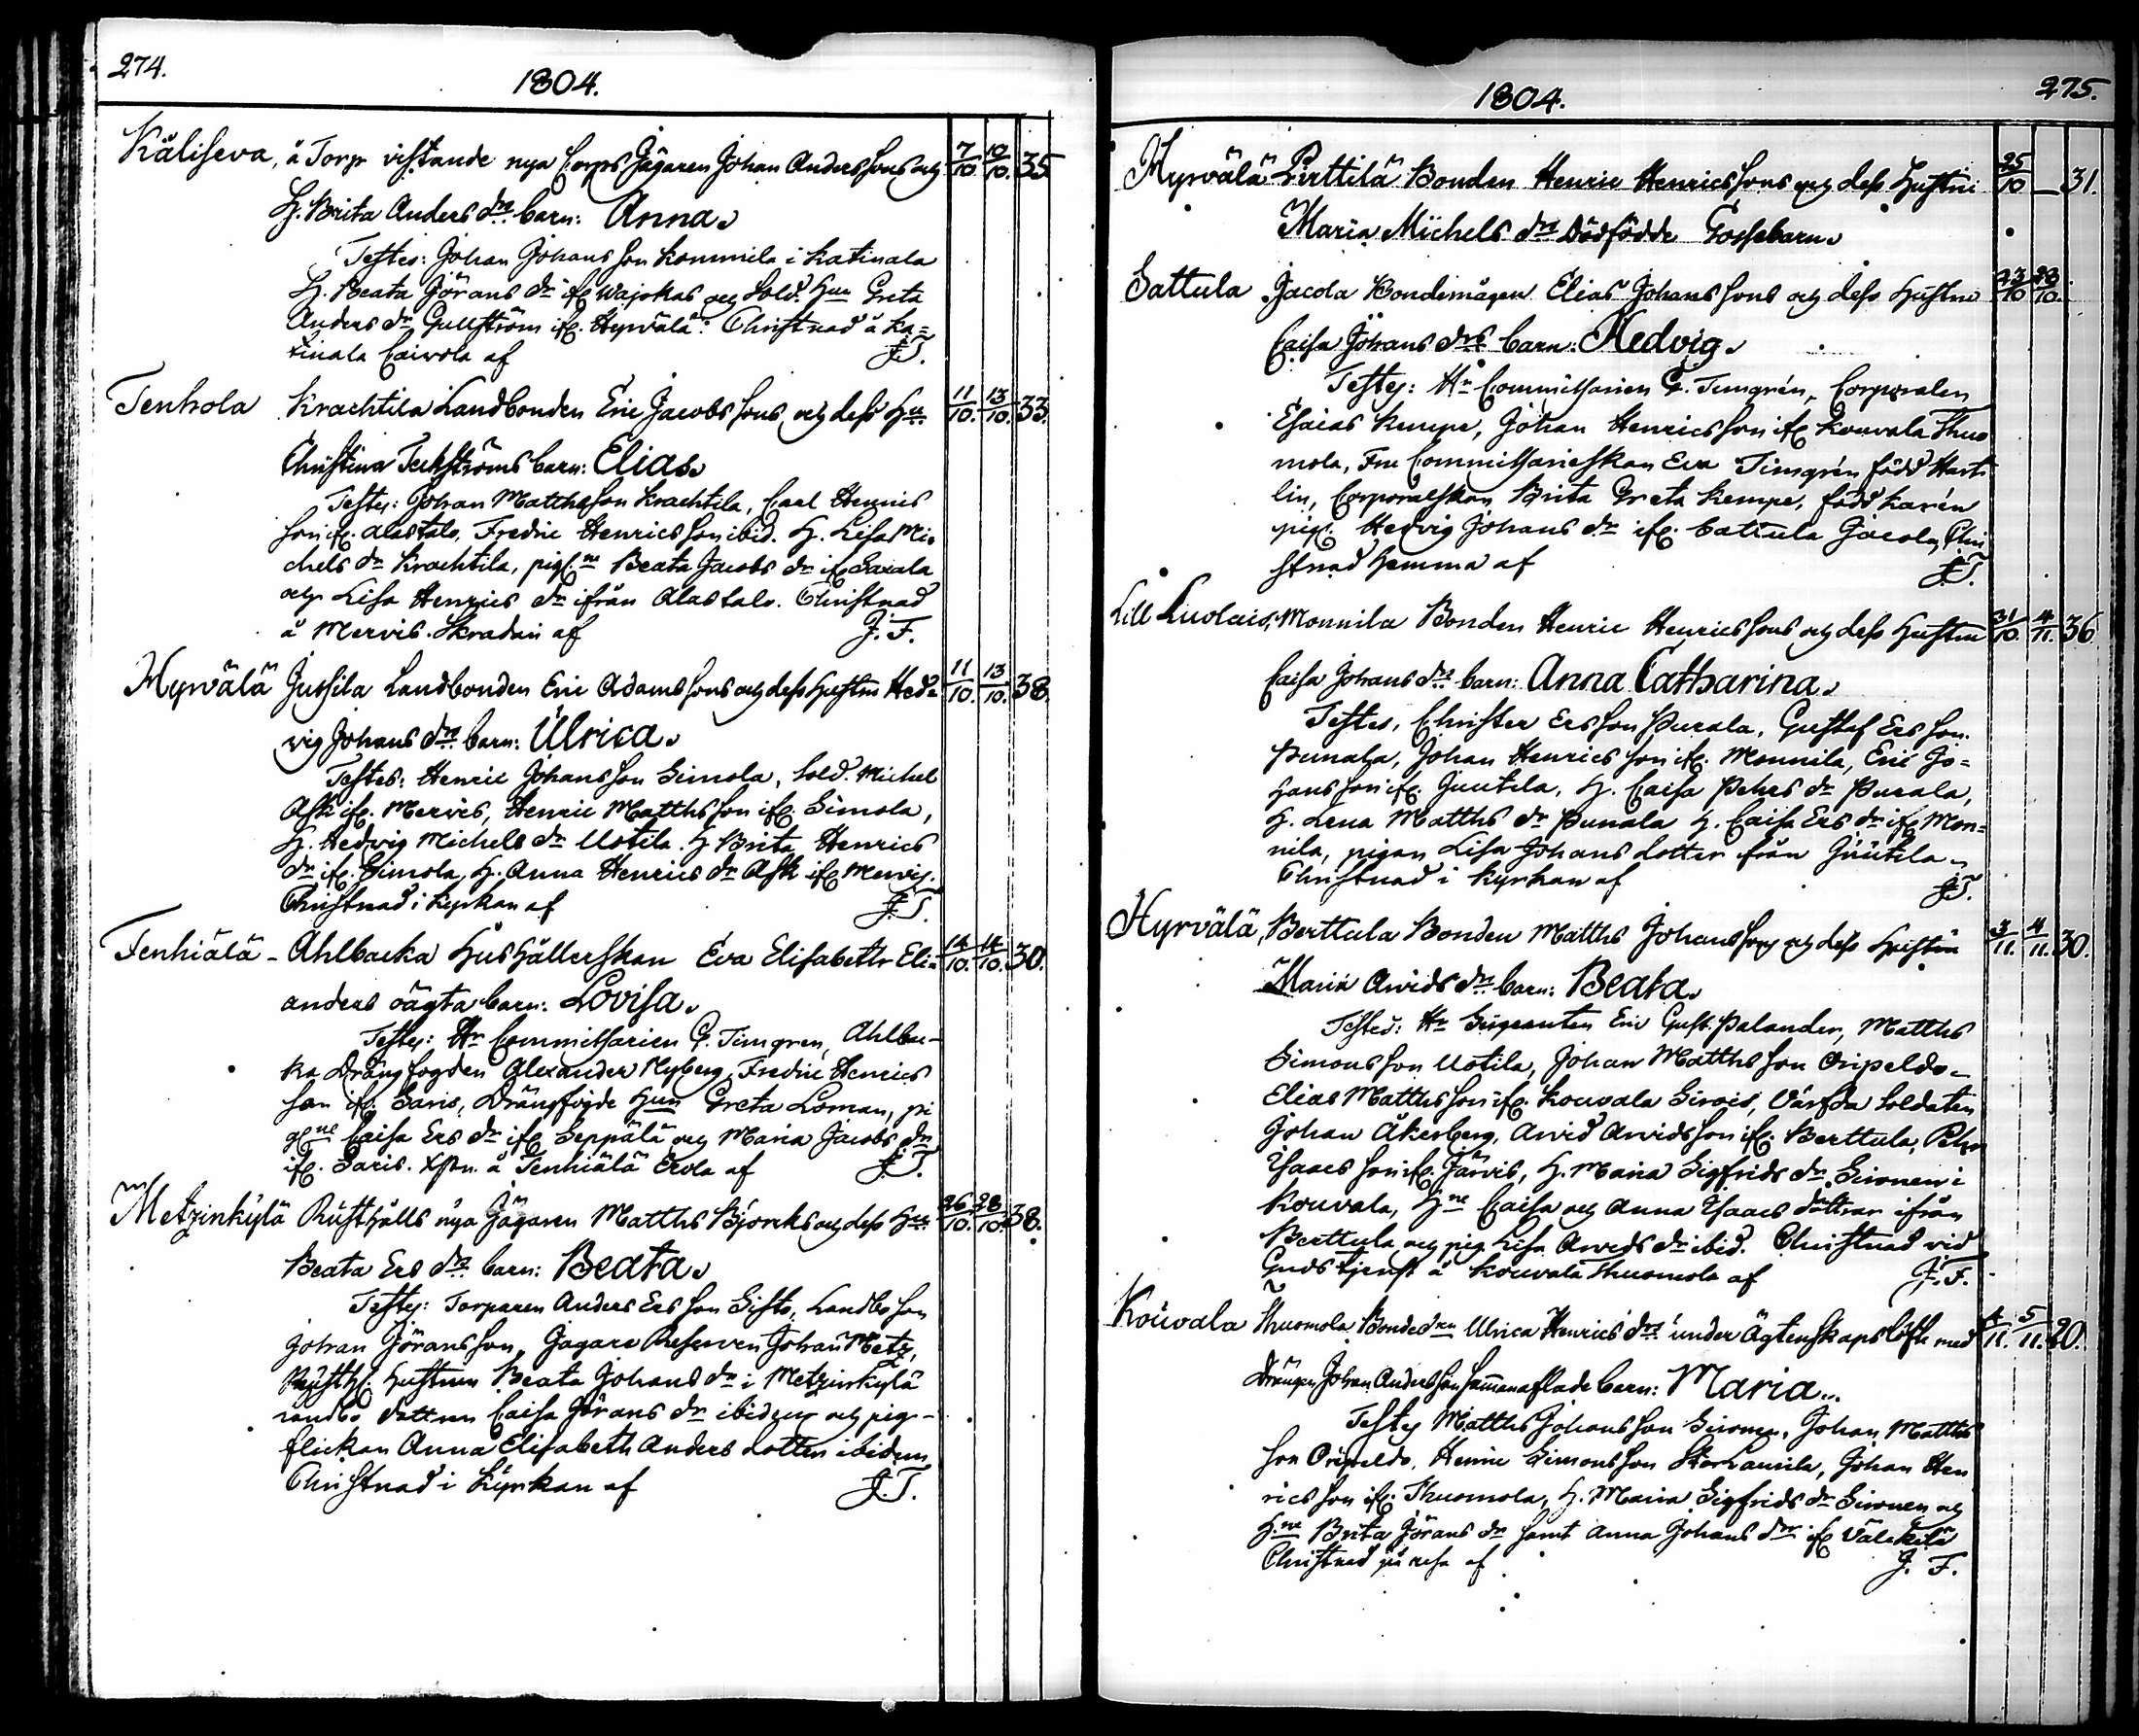 274.
1804.
Käliseva, å Torp vistande nya Corps Jägaren Johan Anderssons och 7/10 10/10. 35
H. Brita Anders drs barn: Anna.
Testes: Johan Johansson Kommila i Katinala
H. Beata Görans dr ifr. Wajokas och Sold. Hun Greta
Anders dr Gullström ifr. Hyrvälä: Christnad å Ka=
tinala Cairola af J.T.
Tenhola Krachtila Landbonden Eric Jacobssons och dess Hu 11/10. 13/10. 33.
Christina Teckströms barn: Elias.
Testes: Johan Matthsson Krachtila, Carl Henrics
son ifr. Alastalo, Fredric Henricsson ibid. H. Lisa Mi-
chels dr Krachtila, pig.ne Beata Jacobs dr ifr Saxala
och Lisa Henrics dr ifrån Alastalo. Christnad
å Mervis Skradari af J.F.
Hyrvälä Jussila Landbonden Eric Adamssons och dess Hustru Hed= 11/10. 13/10. 38.
vig Johans drs barn: Ulrica.
Testes: Henric Johansson Simola, Sold. Michel
Ask ifr. Mervis, Henric Matthsson ifr. Simola,
H. Hedvig Michels dr Uotila. H Brita Henrics
dr ifr. Simola, H. Anna Henrics dr Ask ifr Mervis.
Christnad i Kyrkan af J.T.
Tenhiälä - Ahlbacka Hushållerskan Eva Elisabeth Eli= 14/10. 14/10. 30.
anders oägta barn: Lovisa.
Testes: Hr Commissarien G. Timgren, Ahlba-
ka Drängfogden Alexander Nyberg, Fredric Henrics
son ifr. Saris, Drängfogde Hun Greta Loman, pi
g.ne Caisa Ers dr ifr Seppälä och Maria Jacobs dr
ifr. Saris. Xstn. å Tenhiälä Erola af J.T.
Metzinkylä Rusthålls nya Jägaren Matths Björcks och dess Hus 26/10. 28/10. 38.
Beata Ers drs barn: Beata.
Testes: Torparen Anders Ersson Sifto, Landbo son
Johan Göransson, Jägare Reserven Johan Metz,
Rusth. Hustrun Beata Johans dr i Metzinkylä
Landbo dottren Caisa Görans dr ibidem och pig-
flickan Anna Elisabeth Anders dotter ibidem
Christnad i Kyrkan af J.T.
1804.
275.
Hyrvälä Pirttilä Bonden Henric Henricssons och dess Hustru 25/10 — 31.
Maria Michels drs Dödfödde Gossebarn.
Sattula Jacola Bondemågen Elias Johanssons och dess Hustru 23/10 28/10.
Caisa Johans drs barn: Hedvig.
Testes: Hr Commissarien G. Timgrén, Corporalen
Esaias Kempe, Johan Henricsson ifr Kouvala Thuo
mola, Fru Commissarieskan Eva Timgrén född Hart-
lin, Corporalskan Brita Greta Kempe, född Karén
pig. Hedvig Johans dr ifr. Sattula Jacola, Chri
stnad hemma af J.T.
Lill Luolais, Monnila Bonden Henric Henricssons och dess Hustru 31/10. 4/11. 36
Caisa Johans drs barn: Anna Catharina.
Testes, Christer Ersson Purala, Gustaf Ersson
Punala, Johan Henricsson ifr. Monnila, Eric Jo=
hansson ifr. Juutila, H. Caisa Pehrs dr Purala,
H. Lena Matths dr Punala H. Caisa Ers dr ifr Mon=
nila, pigan Lisa Johans dotter från Juutila.
Christnad i Kyrkan af J.T.
Hyrvälä, Berttula Bonden Matths Johanssons och dess Hustru 3/11. 4/11. 30.
Maria Arvids drs barn: Beata.
Testes: Hr Sergeanten Eric Gust. Palander, Matths
Simonsson Uotila, Johan Matthsson Oripeldo.
Elias Matthsson ifr. Kouvala Sirois, Värfda Soldaten
Johan Åkerberg, Arvid Arvidsson ifr. Berttula, Pehr
Isaacsson ifr. Järvis, H. Maria Sigfrids dr Sironen i
Kouvala, H.ne Caisa och Anna Isaacs döttrar ifrån
Berttula och pig. Lisa Arvids dr ibid. Christnad vid
Gudstjenst å Kouvala Thuomola af J.F.
Kouvala Thuomola Bonde dren Ulrica Henrics drs under Ägtenskaps löfte med 4/11. 5/11. 20.
Drängen Johan Andersson sammanaflade barn: Maria..
Testes Matths Johansson Sironen, Johan Matths
son Oripeldo, Henric Simonsson Skarramila, Johan Hen
ricsson ifr. Thuomola, H. Maria Sigfrids dr Sironen och
H.ne Brita Görans dr samt Anna Johans dr ifr Välikylä
Christnad på resa af J. F.